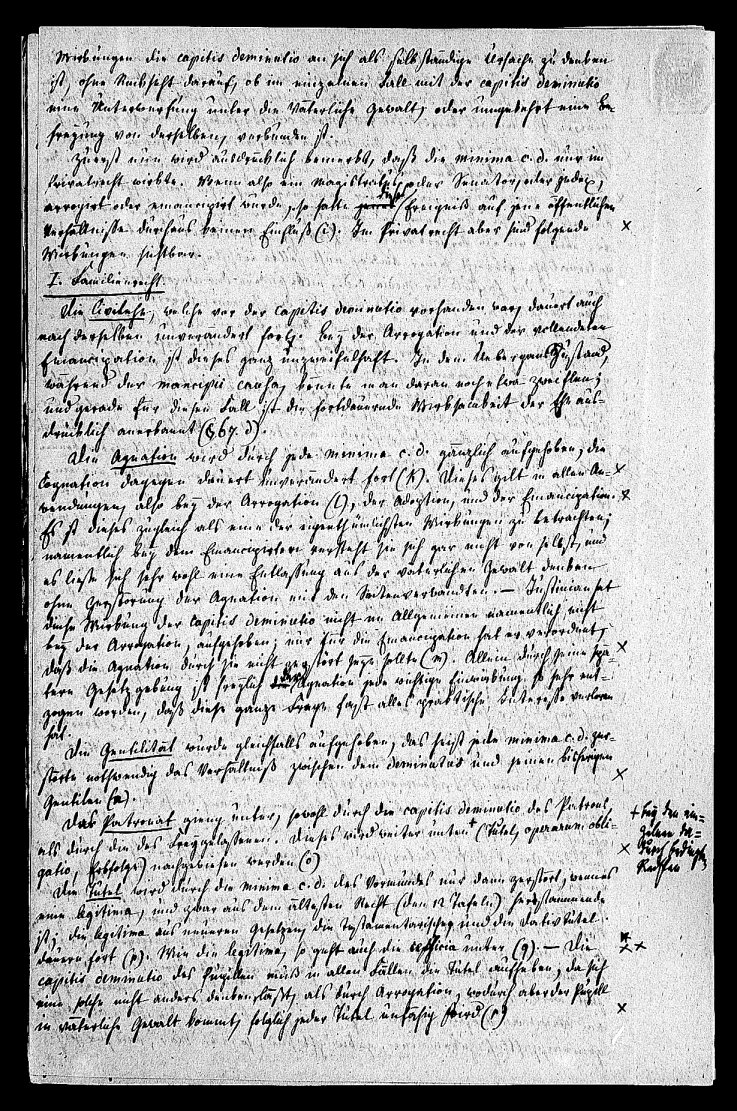 Wirkungen die capitis deminutio an sich als selbständige Ursache zu denken
ist, ohne Rücksicht darauf, ob im einzelnen Fall mit der capitis deminutio
eine Unterwerfung unter die Väterliche Gewalt, oder umgekehrt eine Be-
freyung von derselben, verbunden ist.
Zuerst nun wird ausdrücklich bemerkt, daß die minima c. d. nur im
Privatrecht wirkte. Wenn also ein Magistratus, oder Senator, oder Judex,
arrogirt oder emancipirt wurde, so hatte dieses Ereigniß auf jene öffentlichen
Verhältnisse durchaus keinen Einfluß (i). Im Privatrecht aber sind folgende
Wirkungen sichtbar.
I. Familienrecht.
Die Civilehe, welche vor der capitis deminutio vorhanden war, dauert auch
nach derselben unverändert fort. Bey der Arrogation und der vollendeten
Emancipation ist dieses ganz unzweifelhaft. In dem Uebergangszustand,
während der mancipii causa, könnte man daran noch etwa zweiflen;
und gerade für diesen Fall ist die fortdauernde Wirksamkeit der Ehe aus-
drücklich anerkannt (§ 67. d)
Die Agnation wird durch jede minima c. d. gänzlich aufgehoben, die
Cognation dagegen dauert unverändert fort (k). Dieses gilt in allen An-
wendungen, also bey der Arrogation (l), der Adoption, und der Emancipation.
Es ist dieses zugleich als eine der eigenthümlichsten Wirkungen zu betrachten;
namentlich bey dem Emancipirten versteht sie sich gar nicht von selbst, und
es ließe sich sehr wohl eine Entlassung aus der väterlichen Gewalt denken
ohne Zerstörung der Agnation mit den Seitenverwandten. – Justinian hat
diese Wirkung der capitis deminutio nicht im Allgemeinen namentlich nicht
bey der Arrogation, aufgehoben; nur für die Emancipation hat er verordnet,
daß die Agnation durch sie nicht zerstört seyn sollte (m). Allein durch seine spä-
tere Gesetzgebung ist freylich der Agnation jede wichtige Einwirkung so sehr ent-
zogen worden, daß diese ganze Frage fast alles praktische Interesse verloren
hat.
Die Gentilität wurde gleichfalls aufgehoben, das heißt jede minima c. d. zer-
störte nothwendig das Verhältniß zwischen dem deminutus und seinen bisherigen
Gentilen (n).
Das Patronat gieng unter, sowohl durch die capitis deminutio des Patrons,
als durch die des Freygelassenen. Dieses wird weiter unten + (Tutel, operarum obli-
gatio, Erbfolge) nachgewiesen werden (o)
+ bey den ein-
zelnen da-
durch bedingten
Rechten
Die Tutel wird durch die minima c. d. des Vormundes nur dann zerstört, wenn es
eine legitima, und zwar aus dem ältesten Recht (den 12 Tafeln) herstammende
ist; die legitima aus neueren Gesetzen, die Testamentarische, und die Dativtutel
dauern fort (p). Wie die legitima, so geht auch die cessicia unter (q). – Die
capitis deminutio des Pupillen muß in allen Fällen die Tutel aufheben, da sich
eine solche nicht anders denken läßt, als durch Arrogation, wodurch aber der Pupill
in väterliche Gewalt kommt, folglich jeder Tutel unfähig wird (r)